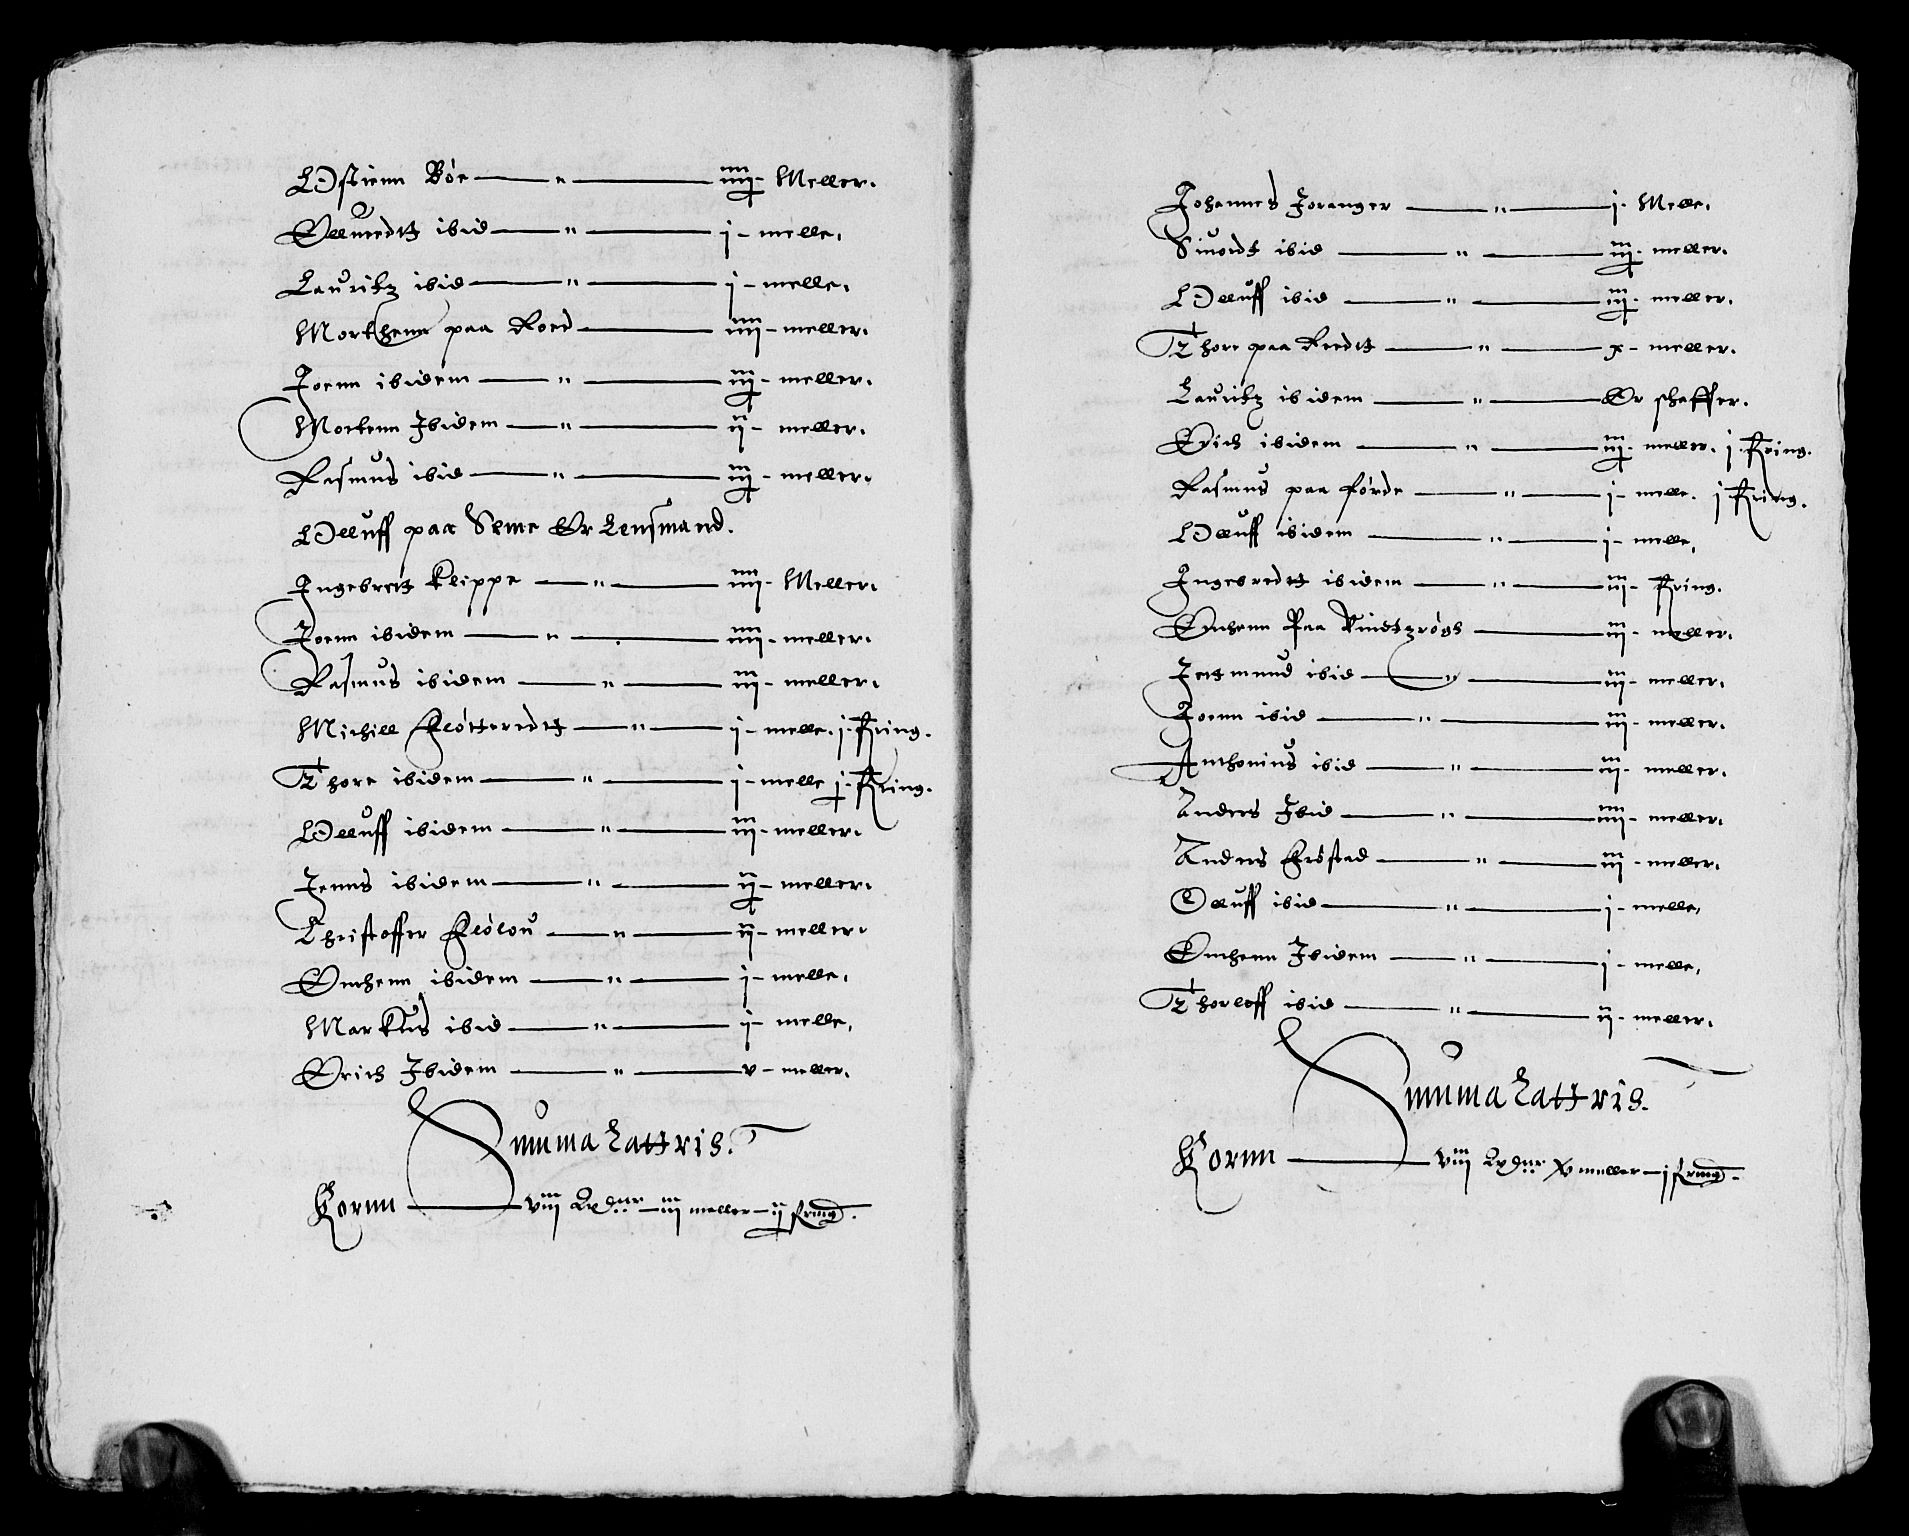 Østienn Bøe — " — iiij - Meller.
Elluerdtt ibid — " — j - melle.
Lauritz ibid — " — j - melle.
Morthenn paa Roed — iiij - meller.
Joenn ibidem — " — iij - meller.
Mortenn Ibidem — " — ij - meller.
Rasmus ibid — " — iij - meller.
Olluff paa Seme Er Lensmand.
Ingebrett Klippe — " — iiij - Meller.
Joenn ibidem — " — iiij - meller.
Rasmus ibidem — " — iij - meller.
Michill Fløtteredtt — " — j - melle. j - Fring.
Thore ibidem — " — j - melle j - Fring.
Olluff ibidem — " — iij - meller.
Jenns ibidem — " — ij - meller.
Christoffer Fløløu — " — ij - meller.
Emhenn ibidem — " — j - melle.
Markus ibid — " — j - melle.
Erich Ibidem — " — v - meller.
Summa Lattris.
Kornn — viij — iij meller — ij fring.
Johannes Joranger — " — j - Melle.
Siuordt ibid — " — iij - meller.
Olluff ibid — " — iij - meller.
Thore paa Reedtt — " — x - meller.
Lauritz ibidem — " — Er schaffer.
Erich ibidem — " — iij - meller. j - Fring.
Rasmus paa Førde — " — j - melle. j Fring.
Olluff ibidem — " — j - melle.
Ingebredtt ibidem — " — iij - Fring.
Emhenn Paa — iij - meller.
Jertmund ibid — " — iij - meller.
Joenn ibid — " — iij - meller.
Anthonius ibid — " — iij - meller.
Anders Ibid — " — iiij - meller.
Anders Frøstad — " — iij - meller.
Olluff ibid — " — j - melle.
Emhenn Ibidem — " — j - melle.
Thorloff ibid — " — ij - meller.
Summa Lattris.
Kornn — viij xv meller — j fring.